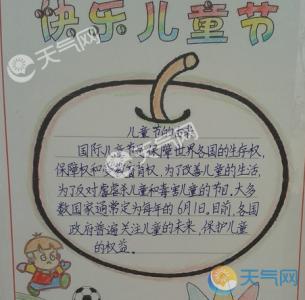 快乐儿童节
天气网
儿童节的
国际儿童节 保障世界各国的生存权,
保障权和 育权,为了改善儿童的生活,
为了反对虐杀儿童和毒害儿童的节日。大多
数国家通常定为每年的6月1日。目前,各国
政府普遍关注儿童的未来,保护儿童
的权益。
天气网